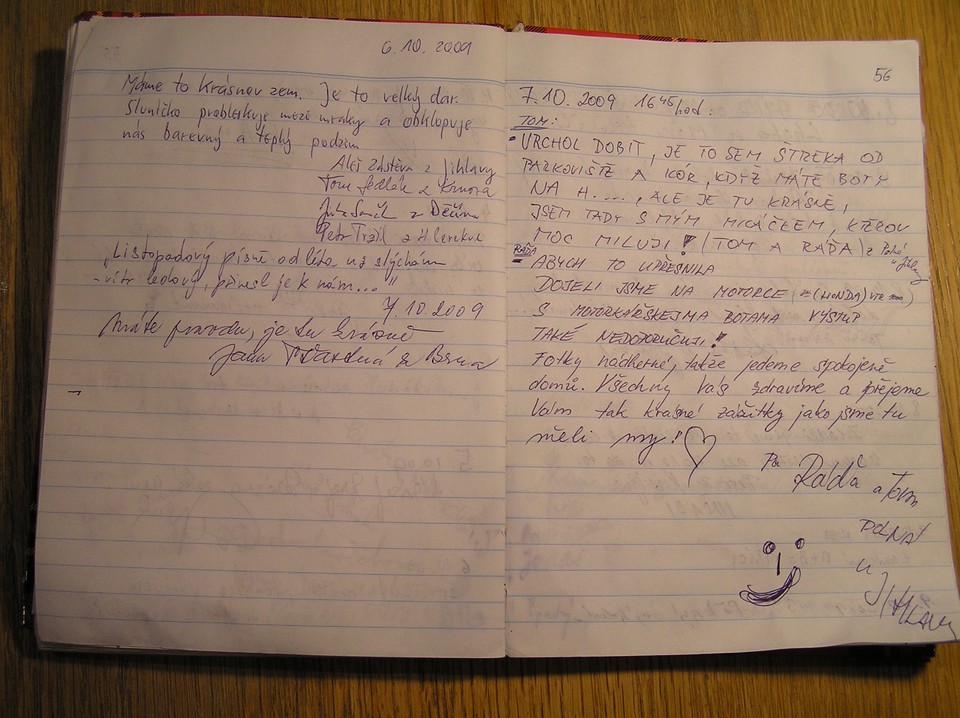 6.10.2009
Máme to krásnou zem. Je to velký dar.
Sluníčko problerkuje mezi mraky a obklopuje
nás barevný a teplý podzim
Aleš Zástěva z Jihlavy
Tom Sedlák z Krnova
z Děčína
Petr z Hlinska
"Listopadový písně od léta už slýchám
- vítr ledový, přines je k nám..."
7.10.2009
Máte pravdu, je tu krásně
Jana z Brna
56
7.10.2009 16 45 hod.
TOM:
- VRCHOL DOBIT, JE TO SEM ŠTREKA OD
PARKOVIŠTĚ A KÓR, KDYŽ MÁTE BOTY
NA H...., ALE JE TU KRÁSNĚ,
JSEM TADY S MÝM MICÁČEEM, KTEROU
MOC MILUJI! (TOM A RÁĎA) z Jihlavy
RÁĎA
- ABYCH TO UPŘESNILA
DOJELI JSME NA MOTORCE (HONDA)
S MOTORKÁŘSKEJMA BOTAMA VÝSTUP
TAKÉ NEDOPORUČUJI!
Fotky nádherné, takže jedeme spokojeně
domů. Všechny Vás zdravíme a přejeme
Vám tak krásné zážitky jako jsme tu
měli my!
Pa Ráďa a Tom
POLNÁ
U JIHLAVY